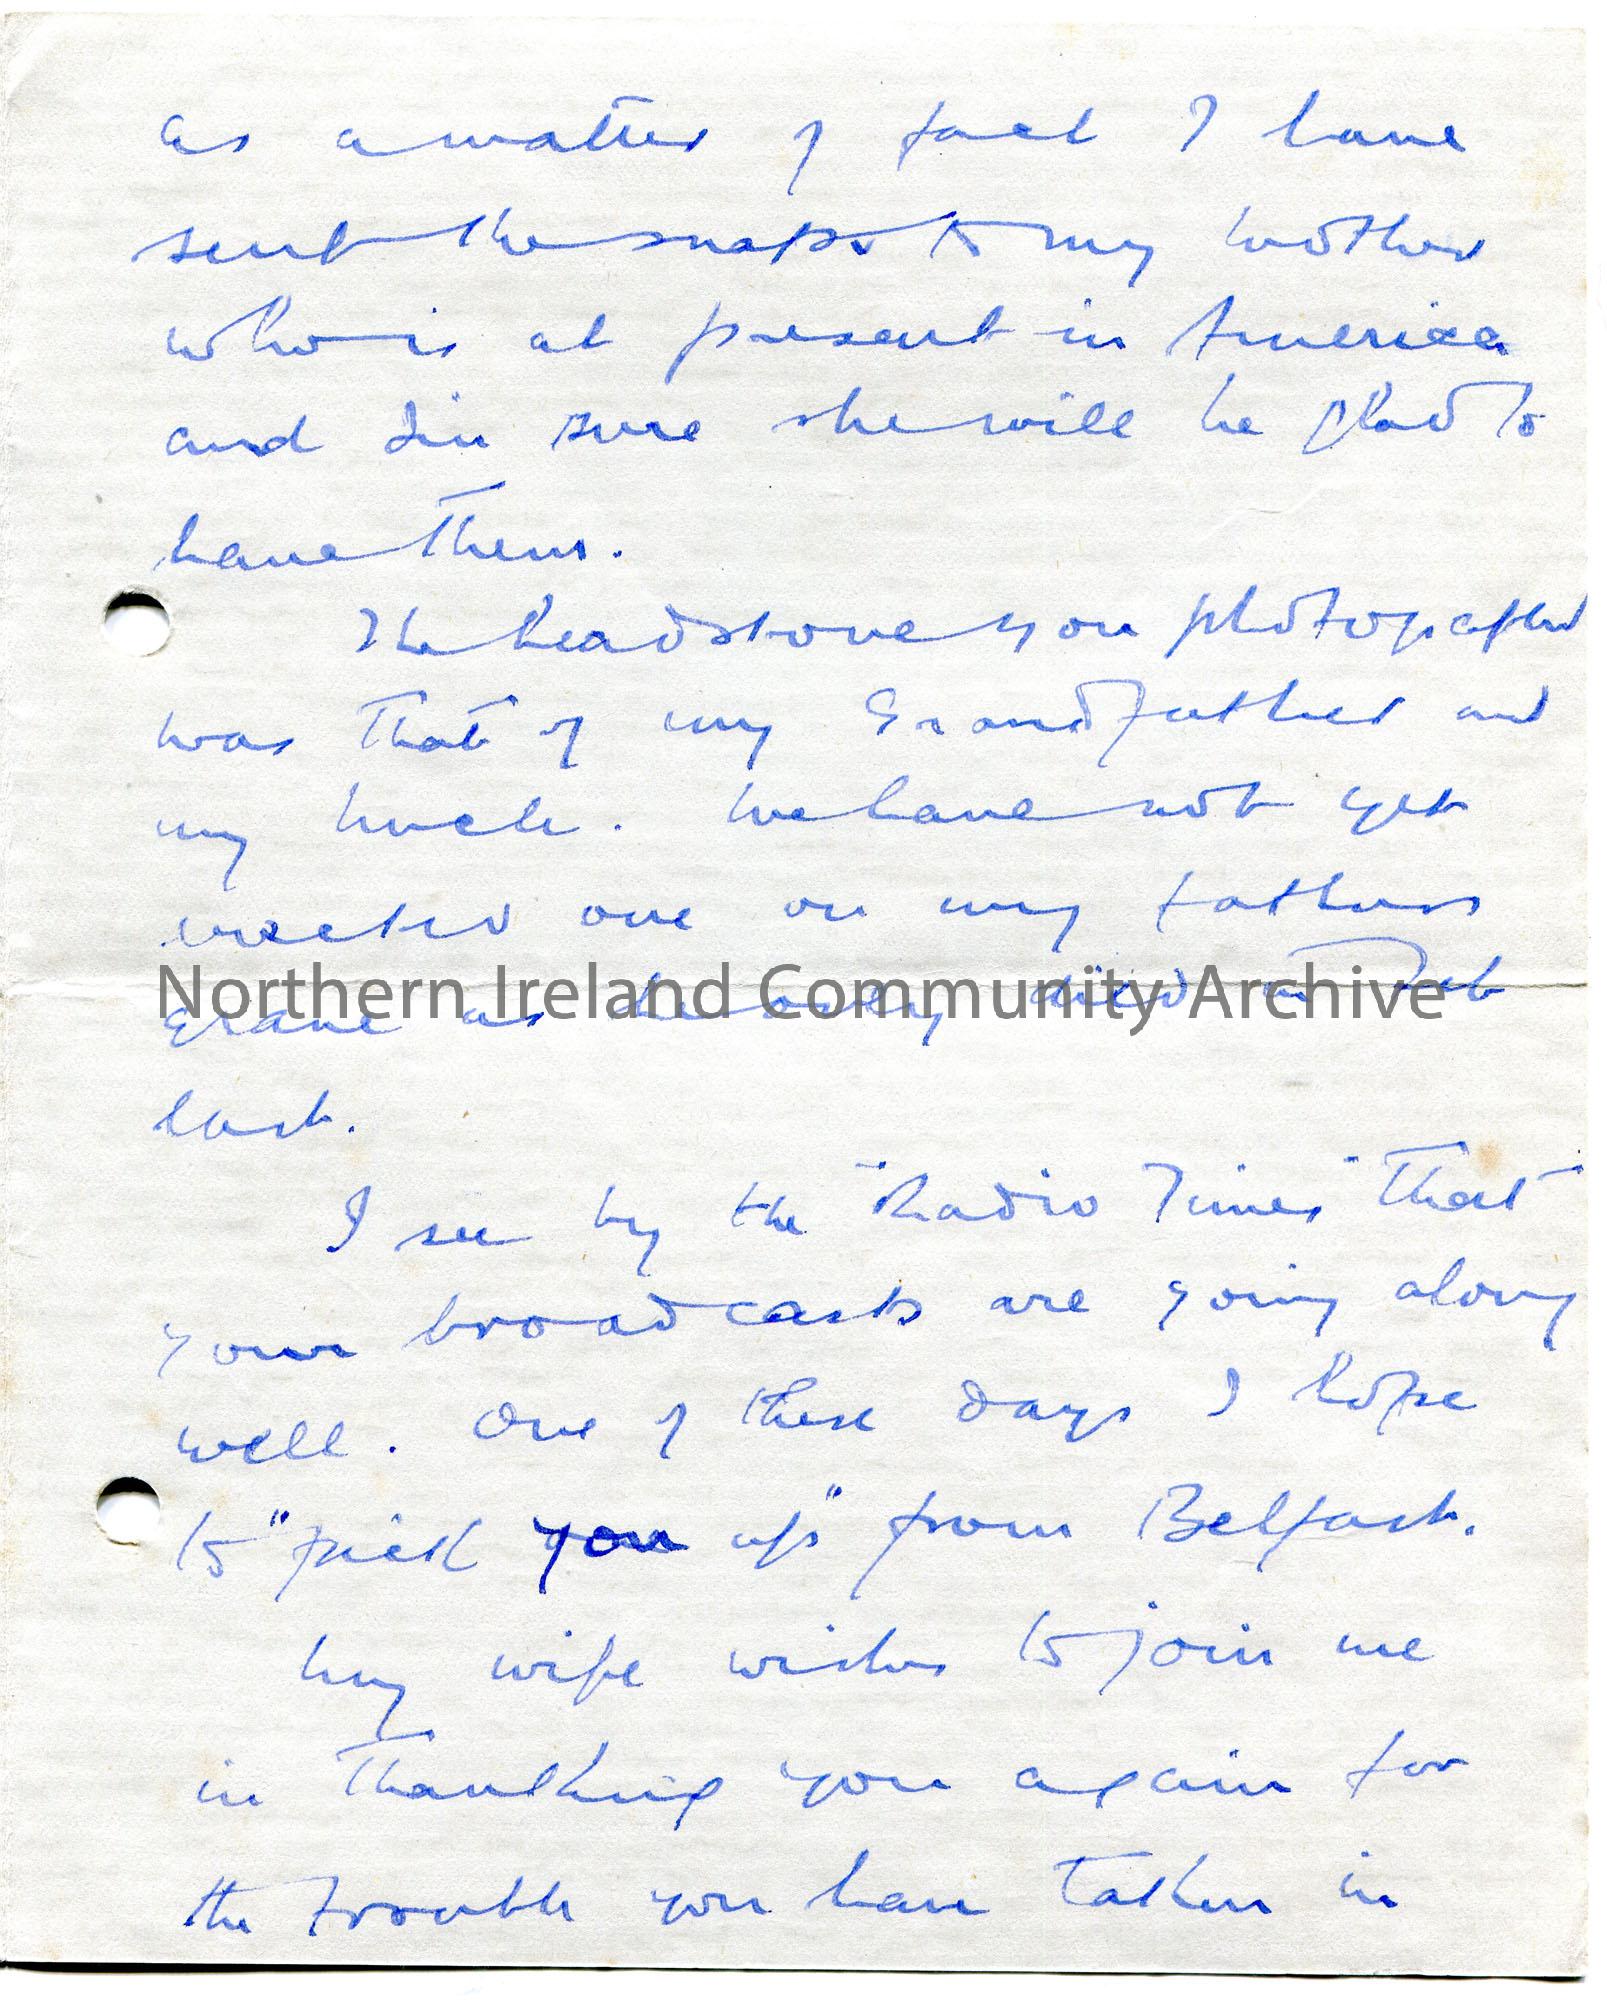 as a matter of fact I have
sent the snaps to my mother
who is at present in America
and I'm sure she will be glad to
have them.
The headstone you photographed
was that of my Grandfather and
my Uncle. We have not yet
erected one on my fathers
Northern Ireland Community Archive
grave as he only died in Feb
last.
I see by the "Radio Times" that
your broadcasts are going along
well. One of these days I hope
to "pick you up" from Belfast.
My wife wishes to join me
in thanking you again for
the trouble you have taken in